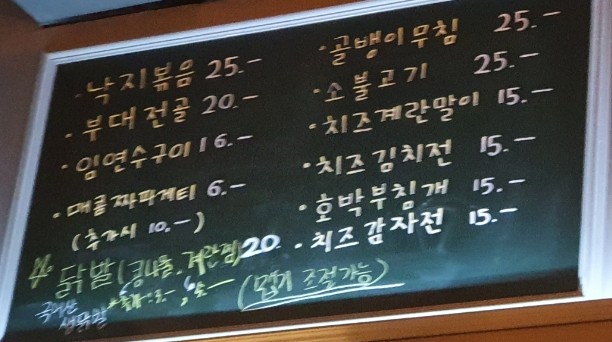 · 낙지볶음 25.-
· 부대전골 20.-
· 임연수구이 16.-
· 매콤짜파게티 6.-
(추가시 10.-)
닭발 (콩나물, 계란찜) 20.
국내산
생닭발
· 골뱅이무침 25.-
· 소불고기 25.-
· 치즈계란말이 15.-
· 치즈김치전 15.-
· 호박부침개 15.-
· 치즈감자전 15.-
(맵기 조절가능)